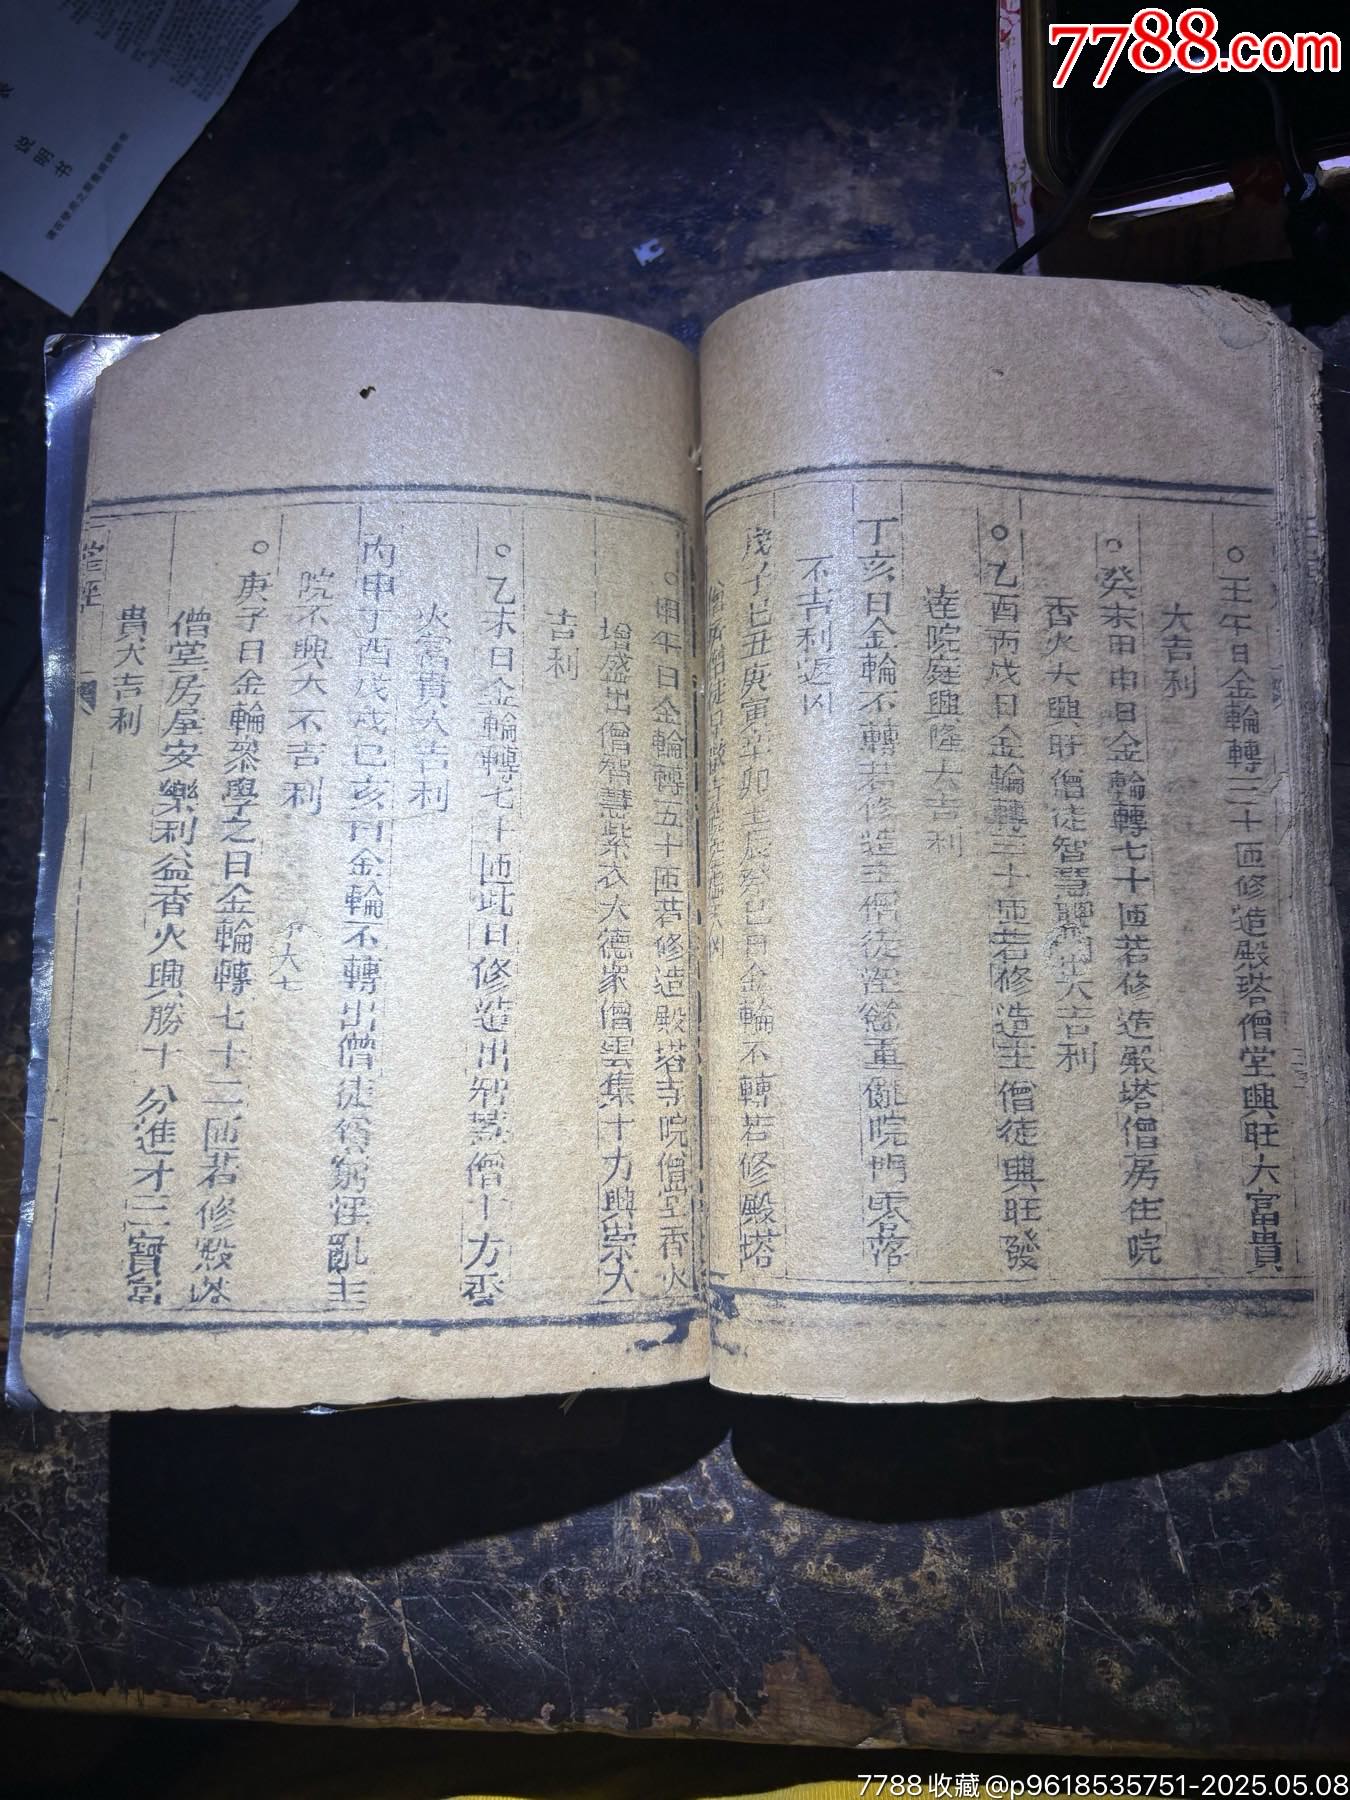 7788.com
说明书
○壬午日金輪轉二十匝修造殿塔僧堂興旺大富貴
大吉利
○癸未甲申日金輪轉七十匝若修造殿塔僧房住院
香火大興旺僧徒智慧聰明出大吉利
○乙酉丙戌日金輪轉三十匝若修造主僧徒興旺發
達院庭興隆大吉利
丁亥日金輪不轉若修造主僧徒淫慾重亂院門零落
不吉利返凶
戊子己丑庚寅辛卯壬辰癸巳日金輪不轉若修殿塔
○甲午日金輪轉五十匝若修造殿塔寺院僧堂香火
增盛出僧智慧紫衣大德眾僧雲集十方興崇大
吉利
○乙未日金輪轉七十匝此日修造出邪蓋僧十方香
火富貴大吉利
丙申丁酉戊戌己亥日金輪不轉出僧徒貧窮淫亂主
院不興大不吉利
○庚子日金輪叅學之日金輪轉七十二匝若修殿塔
僧堂房屋安樂利益香火興勝十分進才三寶富
貴大吉利
7788收藏@p9618535751-2025.05.08